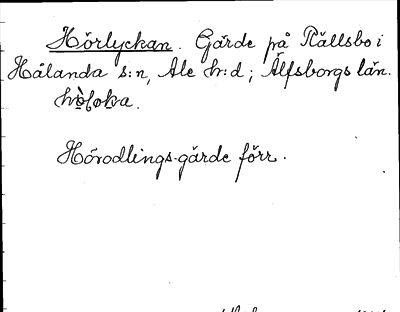 Hörlyckan. Gärde på Kållsbo i
Hålanda s:n, Ale h:d; Älfsborgs län.
Hörodlings-gärde förr.